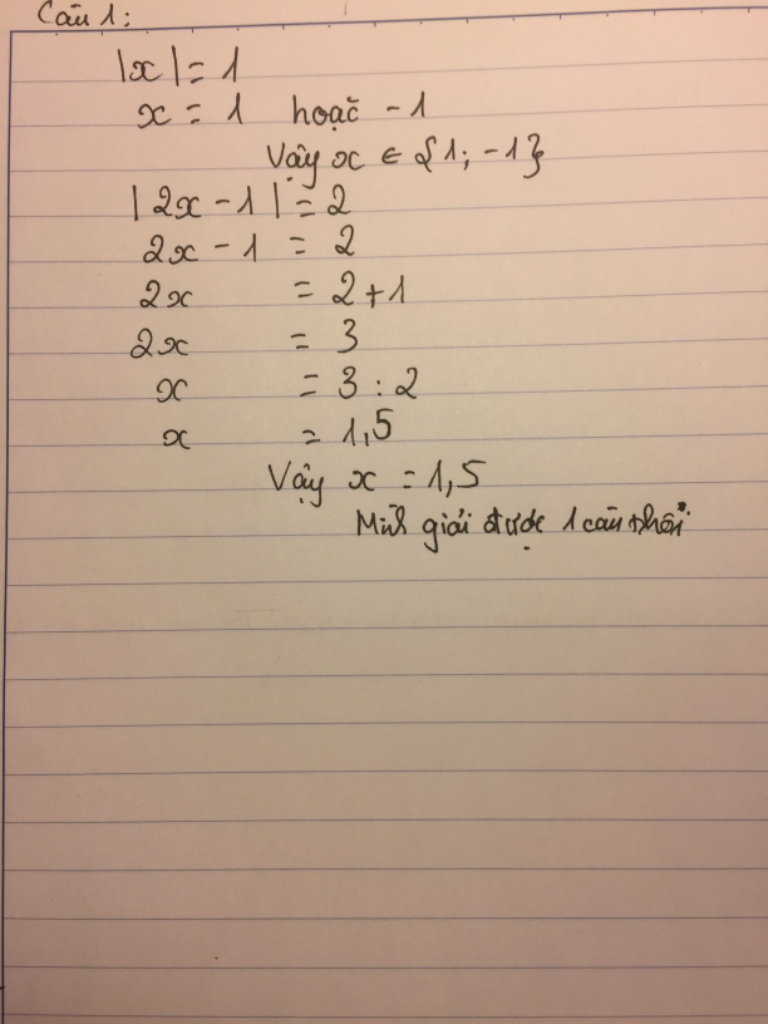 Câu 1:
|x| = 1
x = 1 hoặc -1
Vậy x ∈ {1; -1}
|2x - 1| = 2
2x - 1 = 2
2x = 2+1
2x = 3
x = 3 : 2
x = 1,5
Vậy x = 1,5
Mình giải được 1 câu thôi